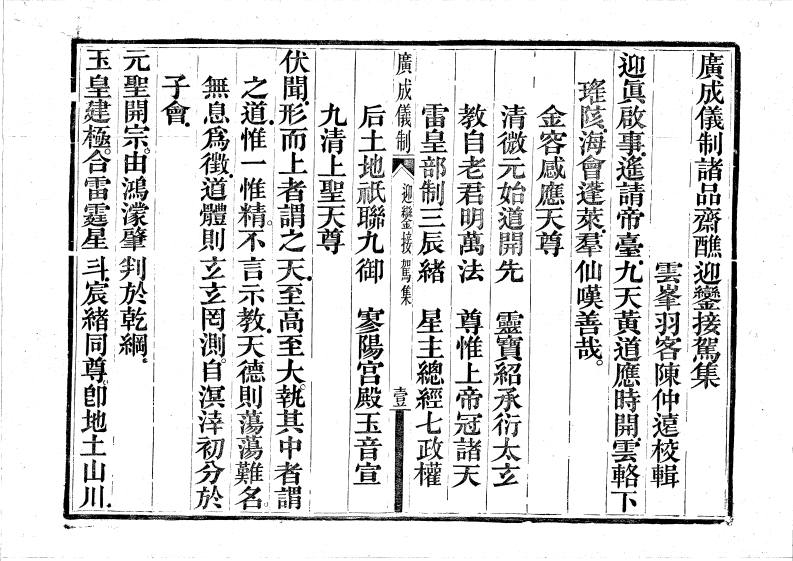 廣成儀制諸品齋醮迎鑾接駕集
雲峯羽客陳仲遠校輯
迎眞啟事遙請帝臺九天黃道應時開雲輅下
瑤陔海會蓬萊羣仙嘆善哉。
金容感應天尊
清微元始道開先　靈寶紹承衍太玄
教自老君明萬法　尊惟上帝冠諸天
雷皇部制三辰緒　星主總經七政權
后土地祇聯九御　寥陽宮殿玉音宣
九清上聖天尊
伏聞形而上者謂之天至高至大執其中者謂
之道惟一惟精。不言示教天德則蕩蕩難名。
無息爲徵道體則玄玄罔測。自溟涬初分於
子會
元聖開宗。由鴻濛肇判於乾綱。
玉皇建極。合雷霆星斗宸緒同尊。卽地土山川
廣成儀制　迎鑾接駕集　壹